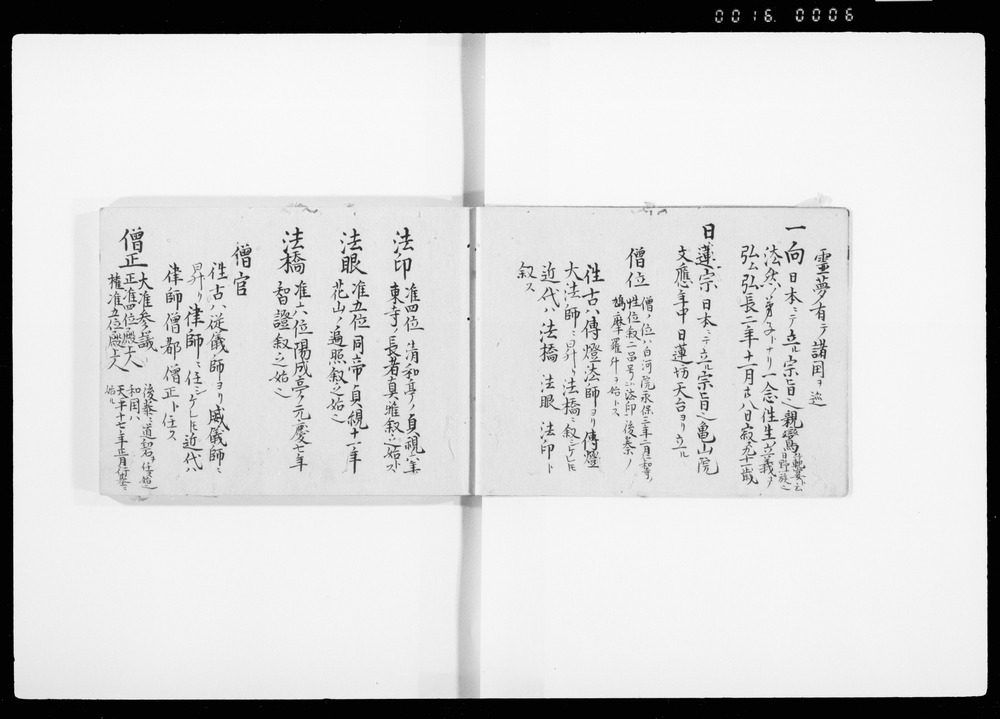 0016.0006
霊夢有テ諸国ヲ巡
一向 日本ニテ立ル宗旨也親鸞
日野ノ族也
法然ノ弟子ナリ一念往生ノ義ヲ
弘ム弘長二年十一月廿八日寂ス九十一歳
日蓮宗 日本ニテ立ル宗旨也亀山院
文應年中日蓮坊天台ヨリ立ル
僧位 僧ノ位ハ白河院永保三年二月
鳩摩羅什ヨリ始トス
往古ハ傳燈法師ヨリ傳燈
大法師ニ昇リ法橋ニ叙シケレ𪜈
近代ハ法橋 法眼 法印ト
叙ス
法印 准四位 清和帝ノ貞観
東寺ノ長者真雅叙之始トス
法眼 准五位 同帝貞観十一年
花山ノ遍照叙之始也
法橋 准六位 陽成帝ノ元慶七年
智證叙之始也
僧官
往古ハ従儀師ヨリ威儀師ニ
昇リ律師ニ任シケレ𪜈近代ハ
律師僧都ノ僧正ト任ス
僧正 大准参議
正准四位殿上人
権准五位殿上人
和国ハ
天平十七年正月行基ニ
始ル